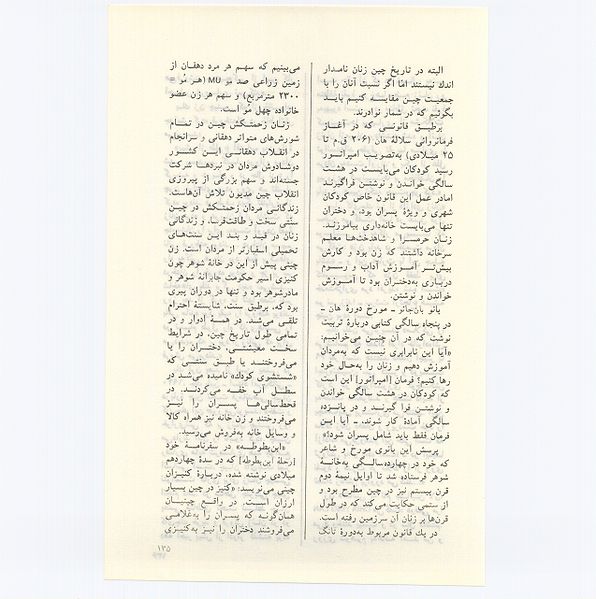 البته در تاریخ چین زنان نامدار
اندك نیستند امّا اگر نسبت آنان را با
جمعیت چین مقایسه کنیم باید
بگوئیم که در شمار نوادرند.
برطبق قانونی که در آغاز
فرمانروائی سلالهٔ هان (۲۰۶ ق.م تا
۲۵ میلادی) به‌تصویب امپراتور
رسید کودکان می‌بایست در هشت
سالگی خواندن و نوشتن فراگیرند
امادر عمل این قانون خاص کودکان
شهری و ویژهٔ پسران بود، و دختران
تنها می‌بایست خانه‌داری بیاموزند.
زنان حرمسرا و شاهدخت‌ها معلم
سرخانه داشتند که زن بود و کارش
بیش‌تر آموزش آداب و رسوم
درباری به‌دختران بود تا آموزش
خواندن و نوشتن.
بانو بان‌جائو ـ مورخ دورهٔ هان ـ
در پنجاه سالگی کتابی دربارهٔ تربیت
نوشت که در آن چنین می‌خوانیم:
«آیا این نابرابری نیست که به‌مردان
آموزش دهیم و زنان را به‌حال خود
رها کنیم؟ فرمان [امپراتور] این است
که کودکان در هشت سالگی خواندن
و نوشتن فرا گیرند و در پانزده
سالگی آمادهٔ کار شوند. ـ آیا این
فرمان فقط باید شامل پسران شود؟»
پرسش این بانوی مورخ و شاعر
که خود در چهارده‌سالگی به‌خانهٔ
شوهر فرستاده شد تا اوایل نیمهٔ دوم
قرن بیستم نیز در چین مطرح بود و
از ستمی حکایت می‌کند که در طول
قرن‌ها بر زنان آن سرزمین رفته است.
در یك قانون مربوط به‌دورهٔ تانگ
می‌بینیم که سهم هر مرد دهقان از
زمین زراعی صد مَو MU (هر مُو =
۲۳۰۰ مترمربع) و سهم هر زن عضو
خانواده چهل مُو است.
زنان زحمتکش چین در تمام
شورش‌های متواتر دهقانی و سرانجام
در انقلاب دهقانی این کشور
دوشادوش مردان در نبردها شرکت
جسته‌اند و سهم بزرگی از پیروزی
انقلاب چین مدیون تلاش آن‌هاست.
زندگانی مردان زحمتکش در چین
سنّتی سخت و طاقت‌فرسا، و زندگانی
زنان در قید و بند این سنت‌های
تحمیلی اسفبارتر از مردان است. زن
چینی پیش از این در خانهٔ شوهر چون
کنیزی اسیر حکومت جابرانهٔ شوهر و
مادرشوهر بود و تنها در دوران پیری
بود که، برطبق سنت، شایستهٔ احترام
تلقی می‌شد. در همهٔ ادوار و در
تمامی طول تاریخ چین، در شرایط
سخت معیشتی، دختران را یا
می‌فروختند یا طبق سنتی که
«شستشوی کودك» نامیده می‌شد در
سطل آب خفه می‌کردند. در
قحط‌سالی‌ها پسران را نیز
می‌فروختند و زن خانه نیز همراه کالا
و وسایل خانه به‌فروش می‌رسید.
«ابن‌بطوطه» در سفرنامهٔ خود
[رحلة ابن‌بطوطه] که در سدهٔ چهاردهم
میلادی نوشته شده، دربارهٔ کنیزان
چینی می‌نویسد: «کنیز در چین بسیار
ارزان است. در واقع چینیان
همان‌گونه که پسران را به‌غلامی
می‌فروشند دختران را نیز به‌کنیزی
۱۳۵